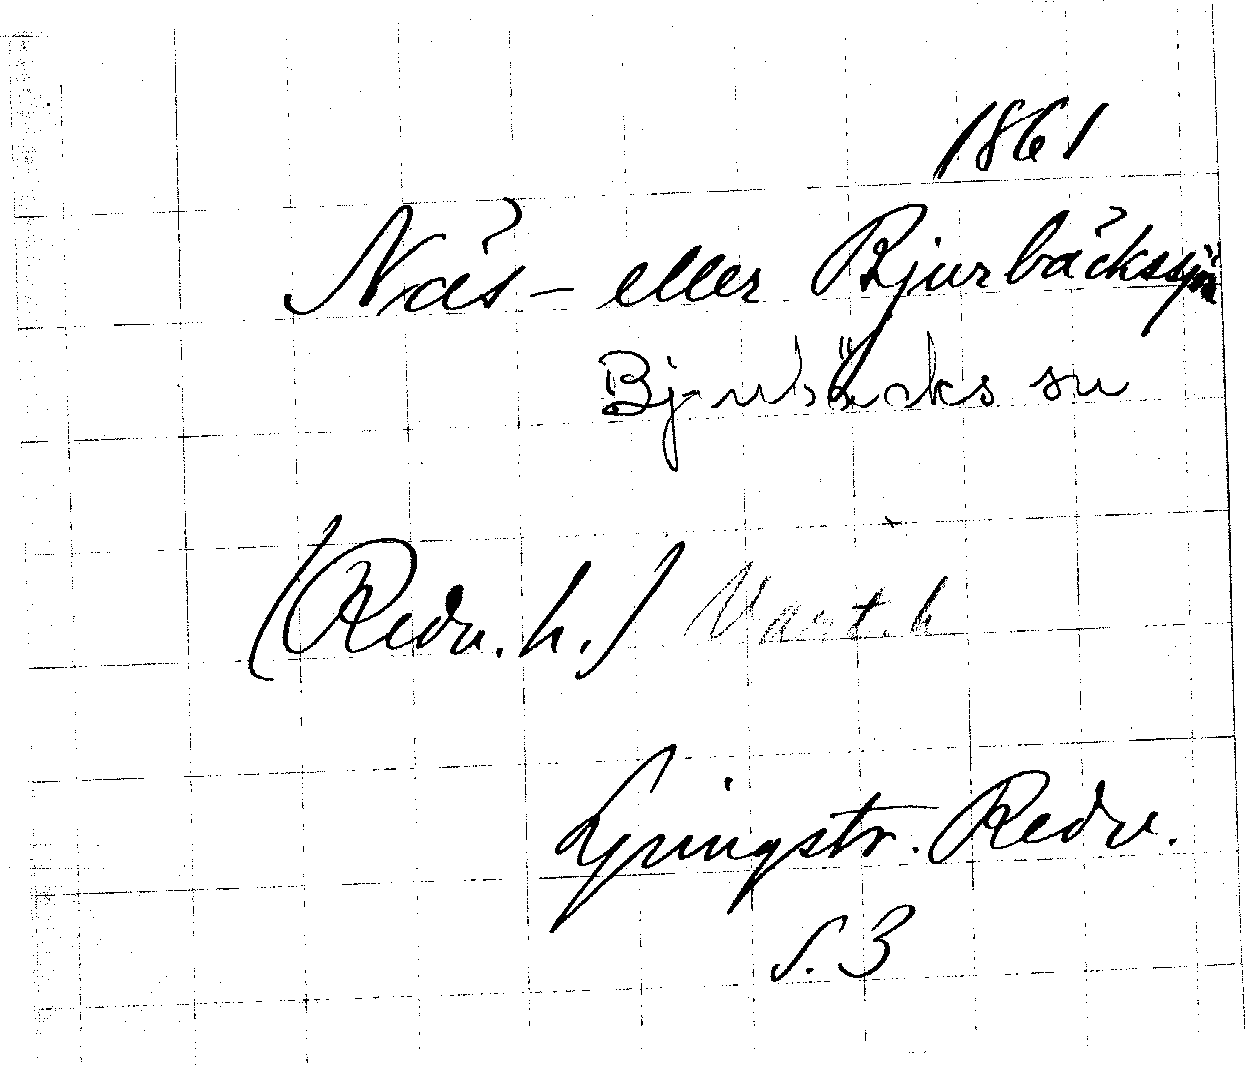 1861
Näs- eller Bjurbäckssjön
Bjurbäcks sn
(Redv. h.) Vart. h
Ljungstr. Redv.
s. 3